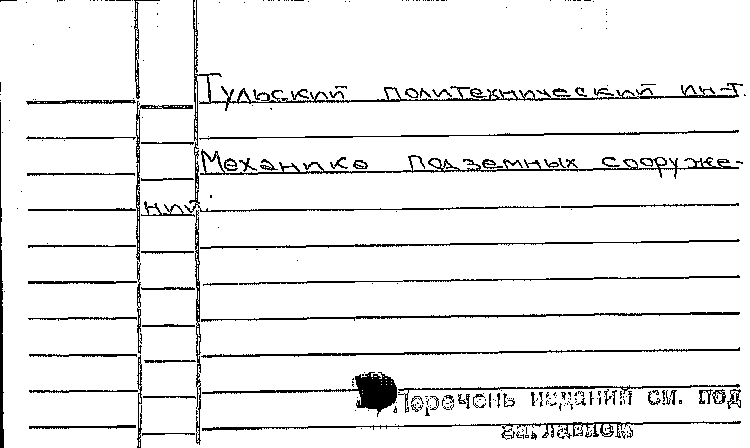 Тульский политехнический ин-т.
Механика подземных сооруже-
ний.
Перечень изданий см. под
заглавием